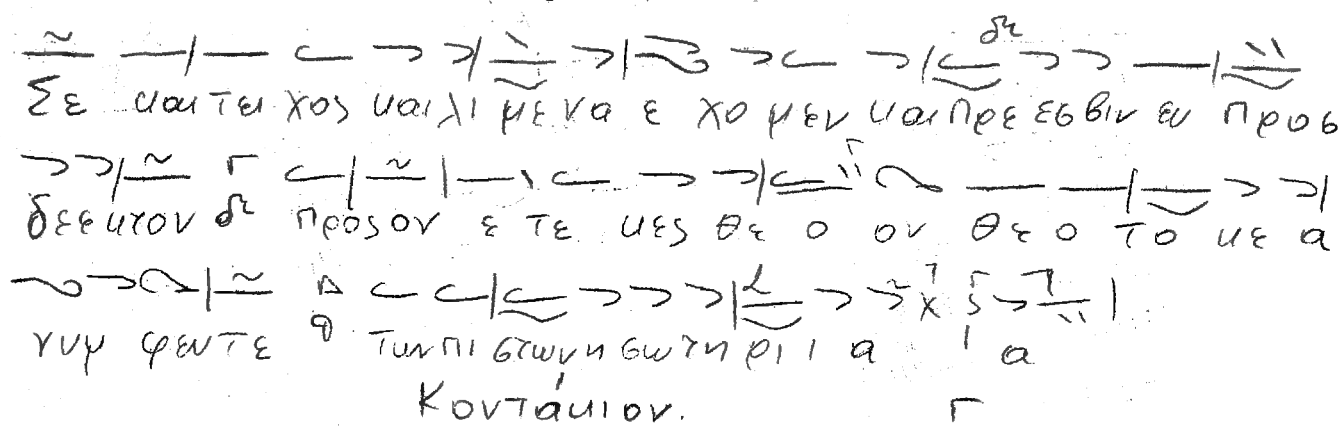 Σε και τει χος και λι με να ε χο μεν και πρε εσ βιν εν προς
δε εκτον προς ον ε τε κες θε ο ον θε ο το κε α
νυμ φευ τε των πι στων η σω τη ρι ι α α
Κοντάκιον. Γ